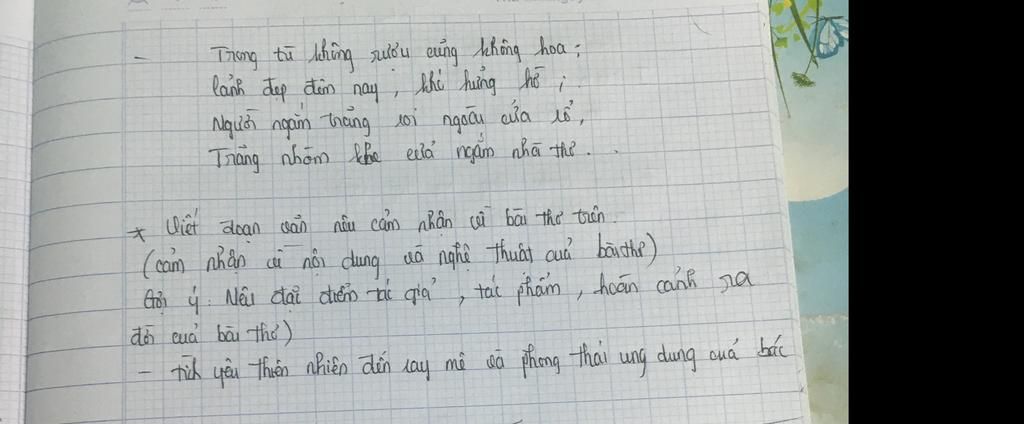 - Trong tù không rượu cũng không hoa;
Cảnh đẹp đêm nay, khó hững hờ;
Người ngắm trăng soi ngoài cửa sổ,
Trăng nhòm khe cửa ngắm nhà thơ.
* Viết đoạn văn nêu cảm nhận về bài thơ trên.
(cảm nhận về nội dung và nghệ thuật quả bài thơ)
Gợi ý: Nêu đặc điểm tác giả, tác phẩm, hoàn cảnh ra
đời quả bài thơ)
- tình yêu thiên nhiên đến say mê và phong thái ung dung quả bác